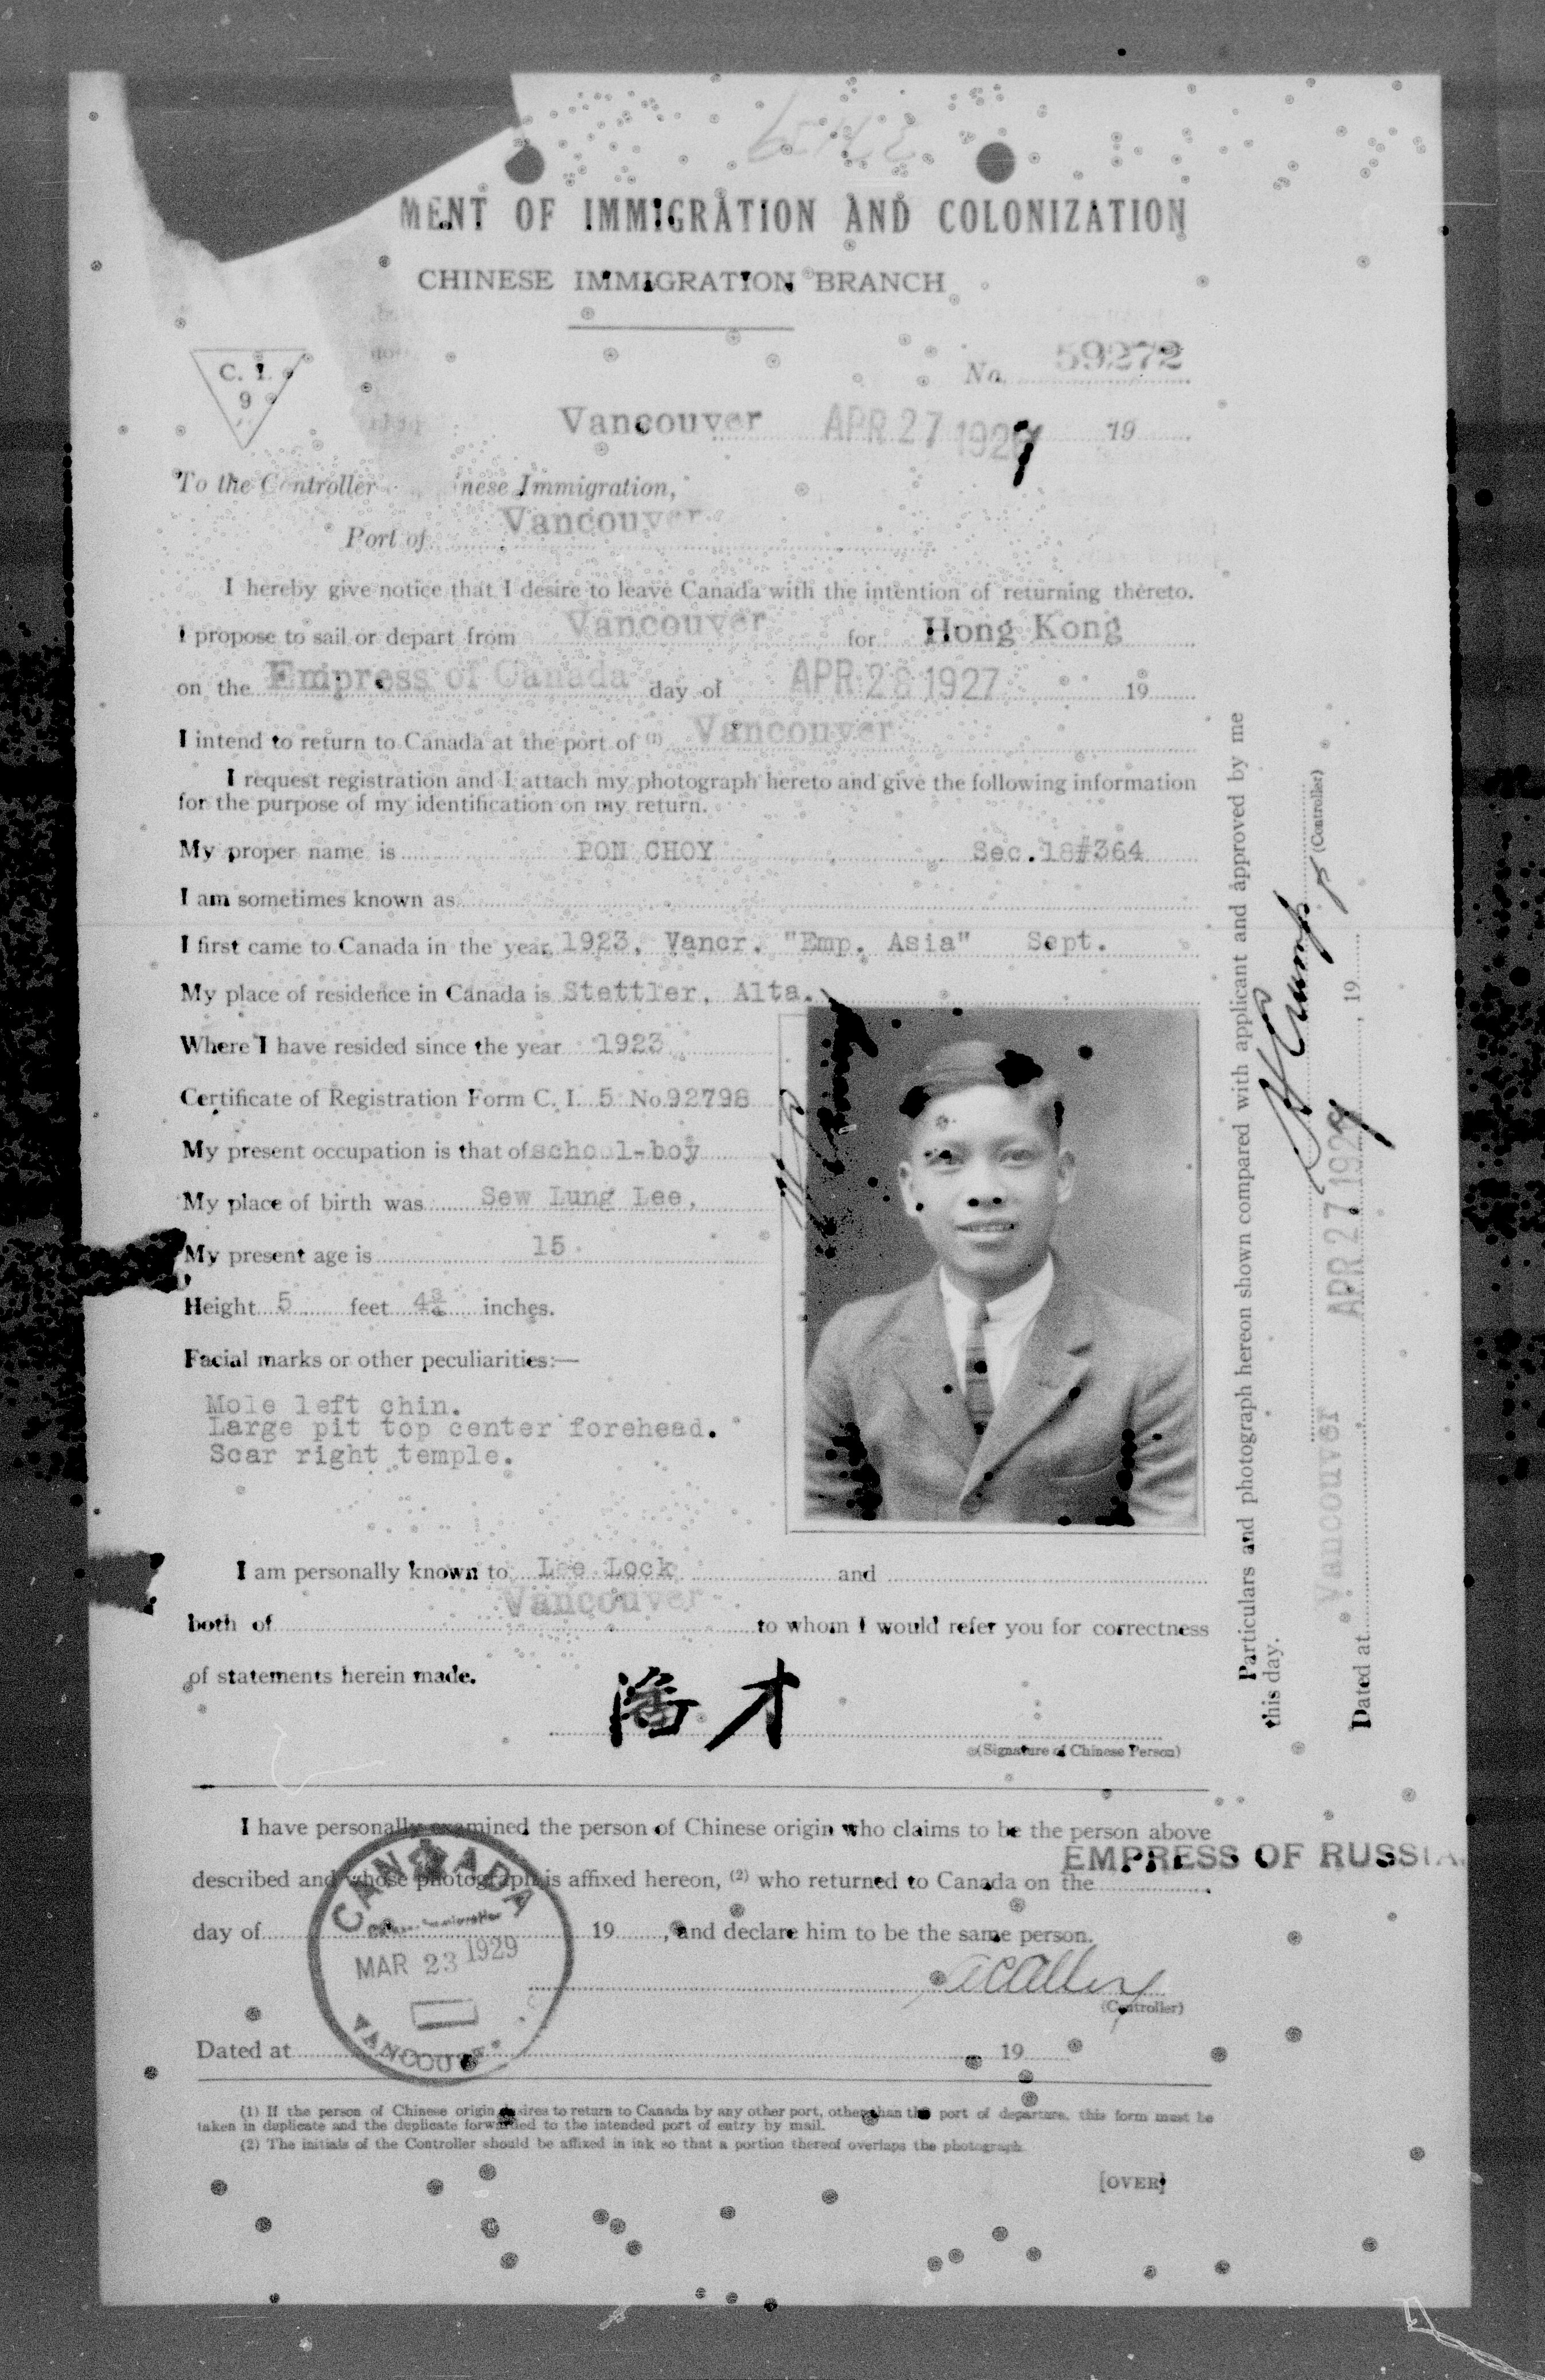 MENT OF IMMIGRATION AND COLONIZATION
CHINESE IMMIGRATION BRANCH
C. I.
9
No. 59272
Vancouver APR 27 1927 19
To the Controller nese Immigration,
Port of Vancouver
I hereby give notice that I desire to leave Canada with the intention of returning thereto.
I propose to sail or depart from Vancouver for Hong Kong
on the Empress of Canada day of APR 28 1927 19
I intend to return to Canada at the port of (1) Vancouver
I request registration and I attach my photograph hereto and give the following information
for the purpose of my identification on my return.
My proper name is PON CHOY Sec.18#364
I am sometimes known as
I first came to Canada in the year 1923, Vancr. "Emp. Asia" Sept.
My place of residence in Canada is Stettler, Alta.
Where I have resided since the year 1923
Certificate of Registration Form C. I. 5 No. 92798
My present occupation is that of school-boy
My place of birth was Sew Lung Lee,
My present age is 15
Height 5 feet 4¾ inches.
Facial marks or other peculiarities:—
Mole left chin.
Large pit top center forehead.
Scar right temple.
I am personally known to Lee Lock and
both of Vancouver to whom I would refer you for correctness
of statements herein made.
潘才
(Signature of Chinese Person)
Particulars and photograph hereon shown compared with applicant and approved by me
this day.
(Controller)
Dated at Vancouver APR 27 1927, 19
I have personally examined the person of Chinese origin who claims to be the person above
described and whose photograph is affixed hereon, (2) who returned to Canada on the EMPRESS OF RUSSIA
day of 19 , and declare him to be the same person.
CANADA
MAR 23 1929
VANCOUVER
(Controller)
Dated at 19
(1) If the person of Chinese origin desires to return to Canada by any other port, other than the port of departure, this form must be
taken in duplicate and the duplicate forwarded to the intended port of entry by mail.
(2) The initials of the Controller should be affixed in ink so that a portion thereof overlaps the photograph
[OVER]